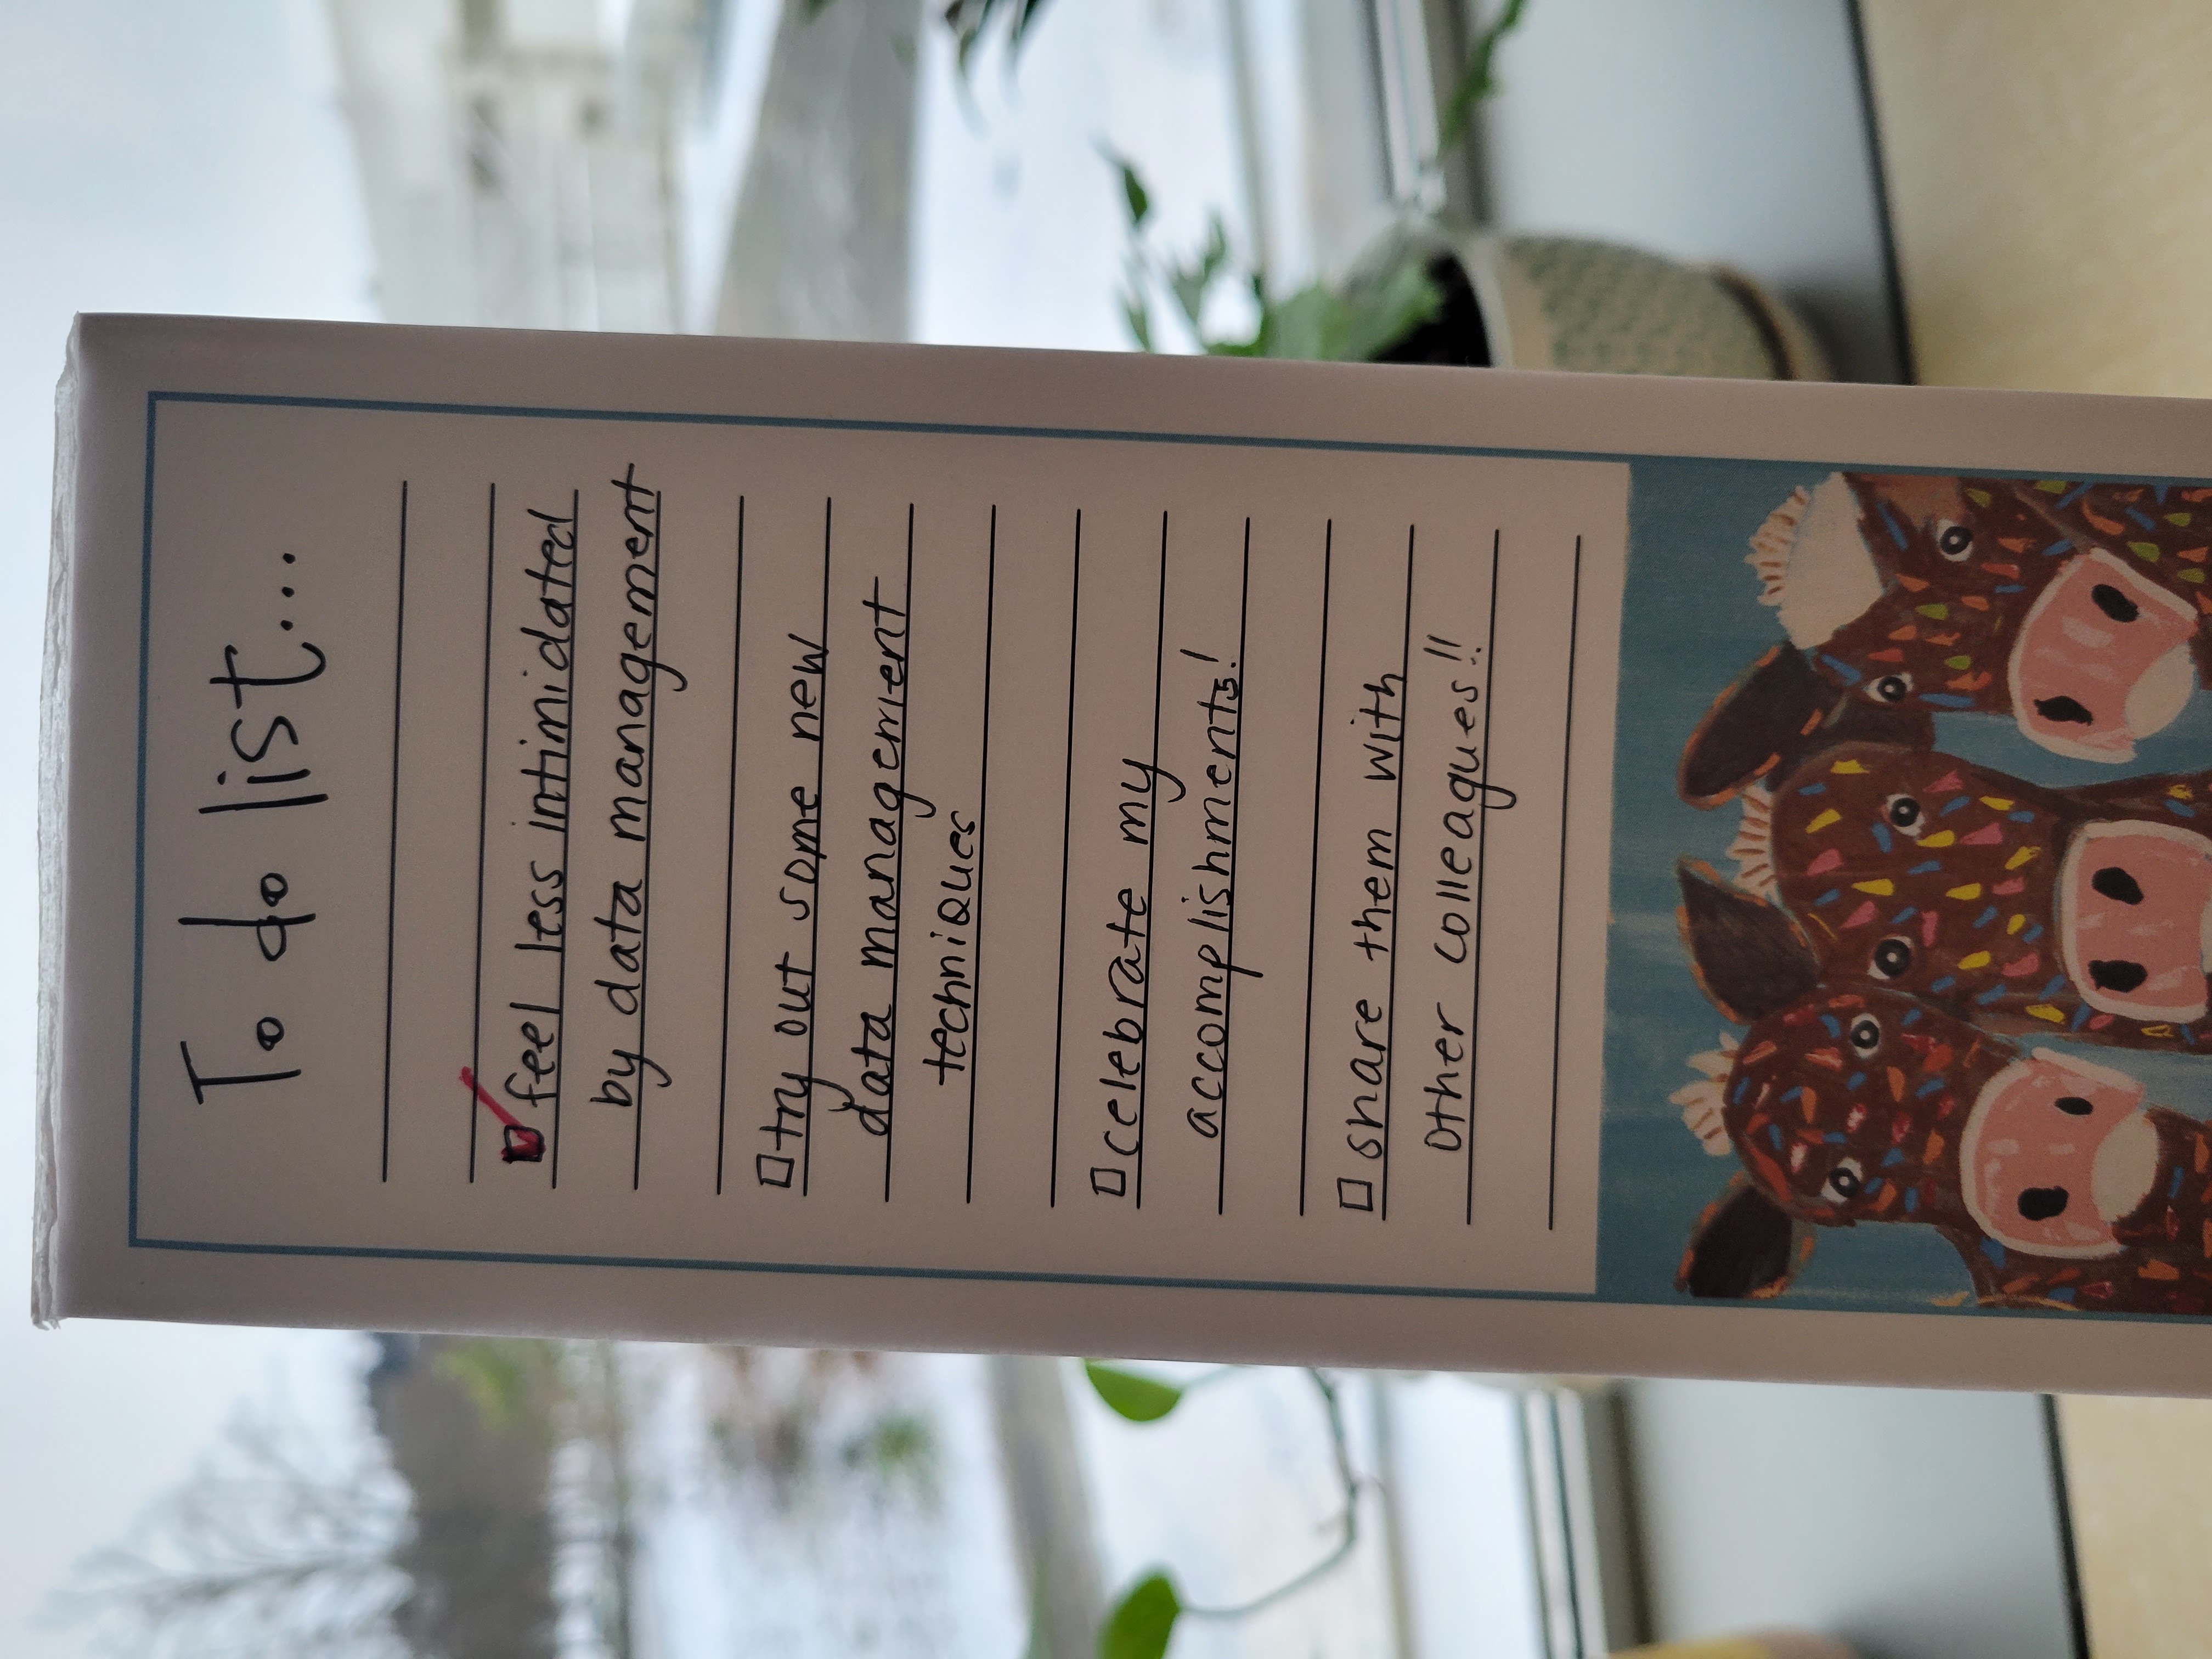 To do list...
☑ feel less intimidated
by data management
☐ try out some new
data management
techniques
☐ celebrate my
accomplishments!
☐ share them with
other colleagues!!